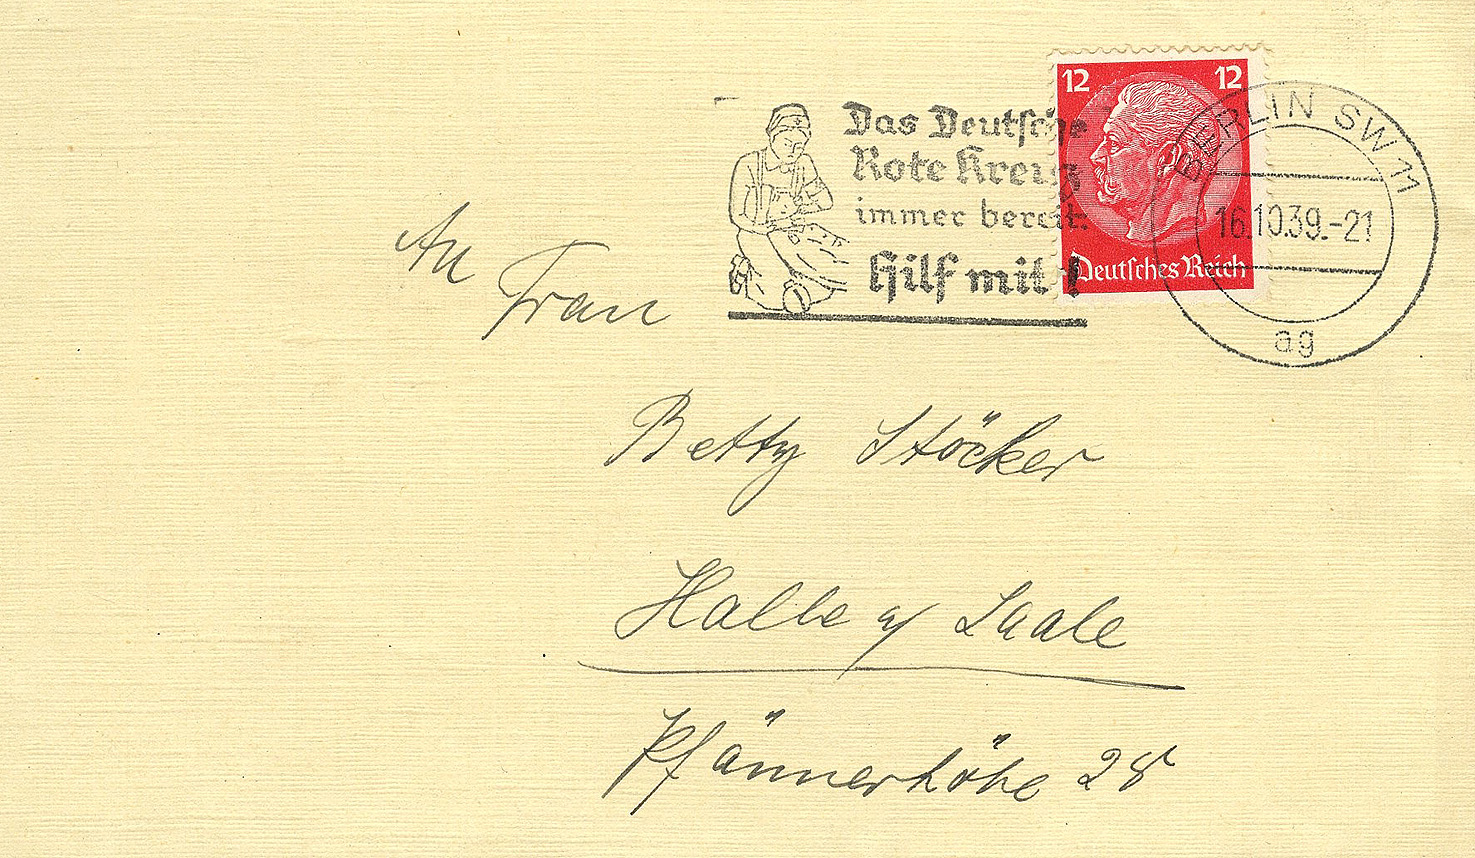 12 12
Das Deutsche
Rote Kreuz
immer bereit.
Hilf mit!
Deutsches Reich
BERLIN SW 11
16.10.39.-21
ag
An
Frau
Betty Stöcker
Halle a/ Saale
Pfännerhöhe 28